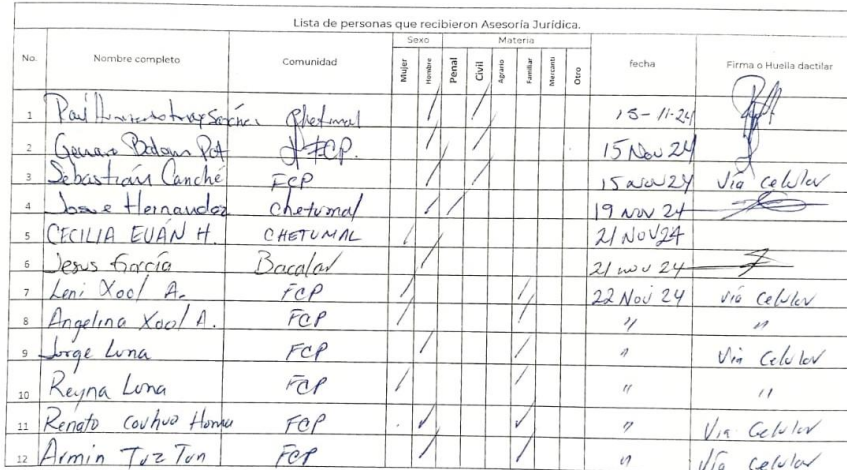 Lista de personas que recibieron Asesoría Jurídica.
Sexo Materia
No. Nombre completo Comunidad Mujer Hombre Penal Civil Agrario Familiar Mercanti Otro fecha Firma o Huella dactilar
1 Raul Chetumal / / 15-11-24
2 Genaro Balam Pat FCP. / / 15 Nov 24
3 Sebastían Canché FCP / / 15 nov 24 Vía celular
4 Josue Hernandez Chetumal / / 19 nov 24
5 CECILIA EUÁN H. CHETUMAL / 21 NOV 24
6 Jesus García Bacalar / 21 nov 24
7 Leni Xool A. FCP / / 22 Nov 24 vía Celular
8 Angelina Xool A. FCP / / " "
9 Jorge Luna FCP / / " Vía Celular
10 Reyna Luna FCP / / " "
11 Renato FCP ✓ ✓ " Via Celular
12 Armin Tuz Tun FCP / / " Vía celular